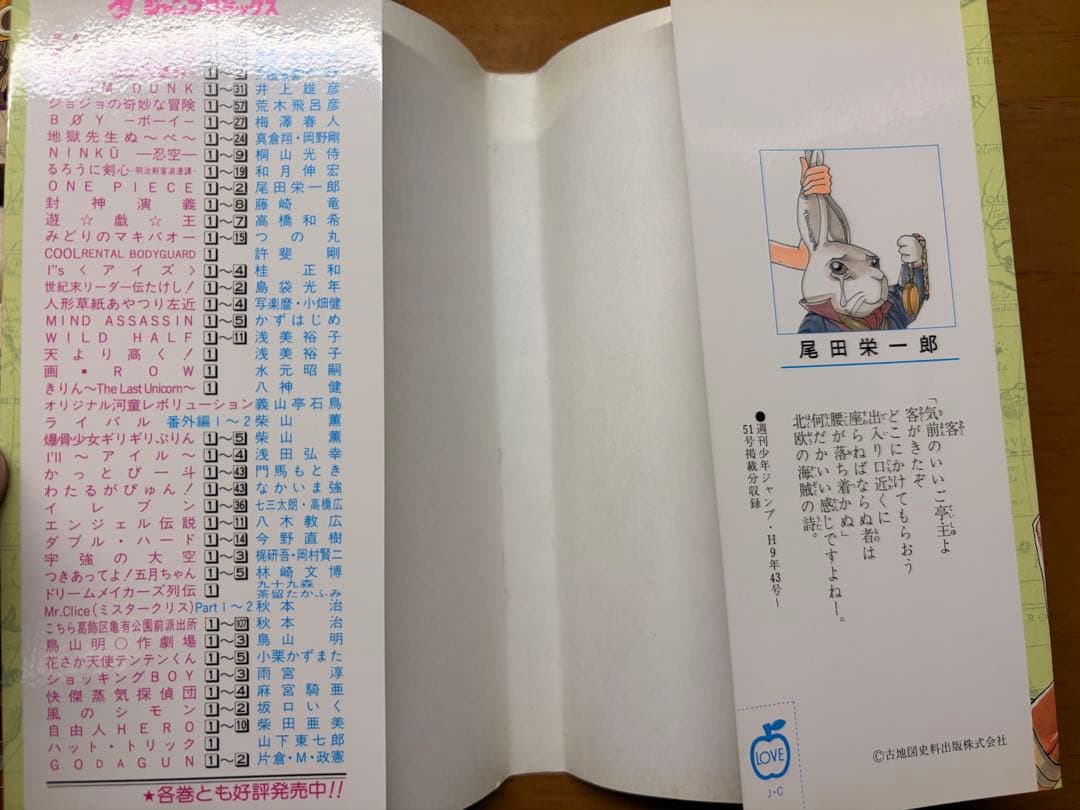 ジャンプコミックス
DUNK 1〜31 井上雄彦
ジョジョの奇妙な冒険 1〜57 荒木飛呂彦
BØY —ボーイ— 1〜27 梅澤春人
地獄先生ぬ〜べ〜 1〜24 真倉翔・岡野剛
NINKŪ —忍空— 1〜9 桐山光侍
るろうに剣心-明治剣客浪漫譚- 1〜19 和月伸宏
ONE PIECE 1〜2 尾田栄一郎
封神演義 1〜8 藤崎竜
遊☆戯☆王 1〜7 高橋和希
みどりのマキバオー 1〜15 つの丸
COOL RENTAL BODYGUARD 1 許斐剛
I"s〈アイズ〉 1〜4 桂正和
世紀末リーダー伝たけし! 1〜2 島袋光年
人形草紙あやつり左近 1〜4 写楽麿・小畑健
MIND ASSASSIN 1〜5 かずはじめ
WILD HALF 1〜11 浅美裕子
天より高く! 1 浅美裕子
画▪ROW 1 水元昭嗣
きりん〜The Last Unicorn〜 1 八神健
オリジナル河童レボリューション 義山亭石鳥
ライバル 番外編1〜2 柴山薫
爆骨少女ギリギリぷりん 1〜5 柴山薫
I'll〜アイル〜 1〜4 浅田弘幸
かっとび一斗 1〜43 門馬もとき
わたるがぴゅん! 1〜43 なかいま強
イレブン 1〜36 七三太朗・高橋広
エンジェル伝説 1〜11 八木教広
ダブル・ハード 1〜14 今野直樹
宇強の大空 1〜3 梶研吾・岡村賢二
つきあってよ!五月ちゃん 1〜5 林崎文博
ドリームメイカーズ列伝 1 九十九森 茶留たかふみ
Mr.Clice(ミスタークリス) Part 1〜2 秋本治
こちら葛飾区亀有公園前派出所 1〜107 秋本治
鳥山明○作劇場 1〜3 鳥山明
花さか天使テンテンくん 1〜5 小栗かずまた
ショッキングBOY 1〜3 雨宮淳
快傑蒸気探偵団 1〜4 麻宮騎亜
風のシモン 1〜2 坂口いく
自由人HERO 1〜10 柴田亜美
ハット・トリック 1 山下東七郎
GODAGUN 1〜2 片倉・M・政憲
★各巻とも好評発売中!!
尾田栄一郎
客
「気前のいいご亭主よ
客がきたぞ
どこにかけてもらおう
出入り口近くに
座らねばならぬ者は
腰が落ち着かぬ」
何だかいい感じですよねー。
北欧の海賊の詩。
●週刊少年ジャンプ・H9年43号〜
51号掲載分収録
LOVE
J・C
©古地図史料出版株式会社